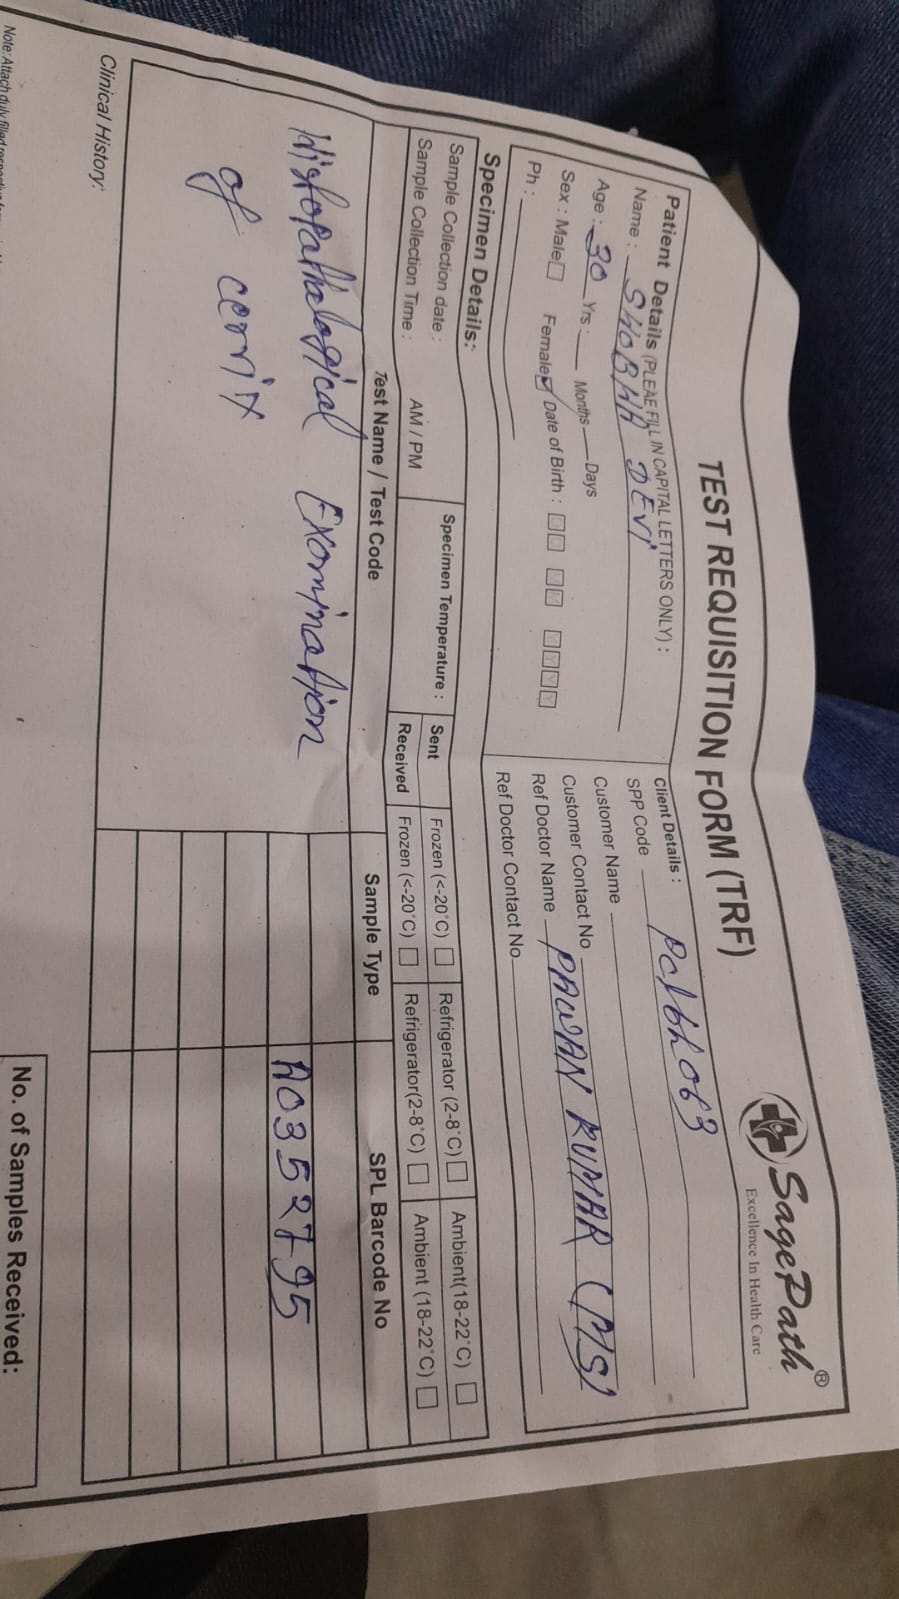 SagePath®
Excellence In Health Care
TEST REQUISITION FORM (TRF)
Patient Details (PLEAE FILL IN CAPITAL LETTERS ONLY) :
Name : SHOBHA DEVI
Age : 30 Yrs : Months Days
Sex : Male Female Date of Birth :
Ph :
Client Details :
SPP Code
Customer Name
Customer Contact No
Ref Doctor Name PAWAN KUMAR (MS)
Ref Doctor Contact No.
Specimen Details:
Sample Collection date :
Sample Collection Time : AM / PM
Specimen Temperature :
Sent Frozen (<-20°C) Refrigerator (2-8°C) Ambient(18-22°C)
Received Frozen (<-20°C) Refrigerator(2-8°C) Ambient (18-22°C)
Test Name / Test Code Sample Type SPL Barcode No
Histopathological Examination A0352795
of cervix
Clinical History:
No. of Samples Received:
Note: Attach duly filled